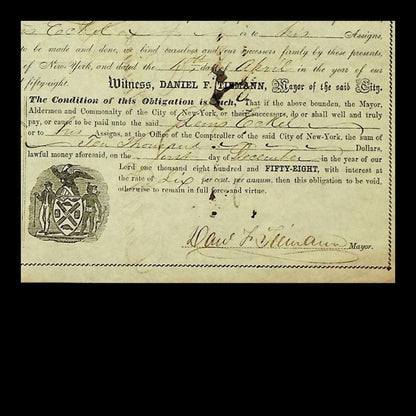 or to his Assigns,
to be made and done, we bind ourselves and our successors firmly by these presents,
of New-York, and dated the day of April in the year of our
fifty-eight. Witness, DANIEL F. TIEMANN, Mayor of the said City.
The Condition of this Obligation is Such, That if the above bounden, the Mayor,
Aldermen and Commonalty of the City of New-York, or their successors, do or shall well and truly
pay, or cause to be paid unto the said
or to his Assigns, at the Office of the Comptroller of the said City of New-York, the sum of
Ten Thousand Dollars,
lawful money aforesaid, on the first day of December in the year of our
Lord one thousand eight hundred and FIFTY-EIGHT, with interest at
the rate of six per cent. per annum, then this obligation to be void,
otherwise to remain in full force and virtue.
Danl F. Tiemann Mayor.